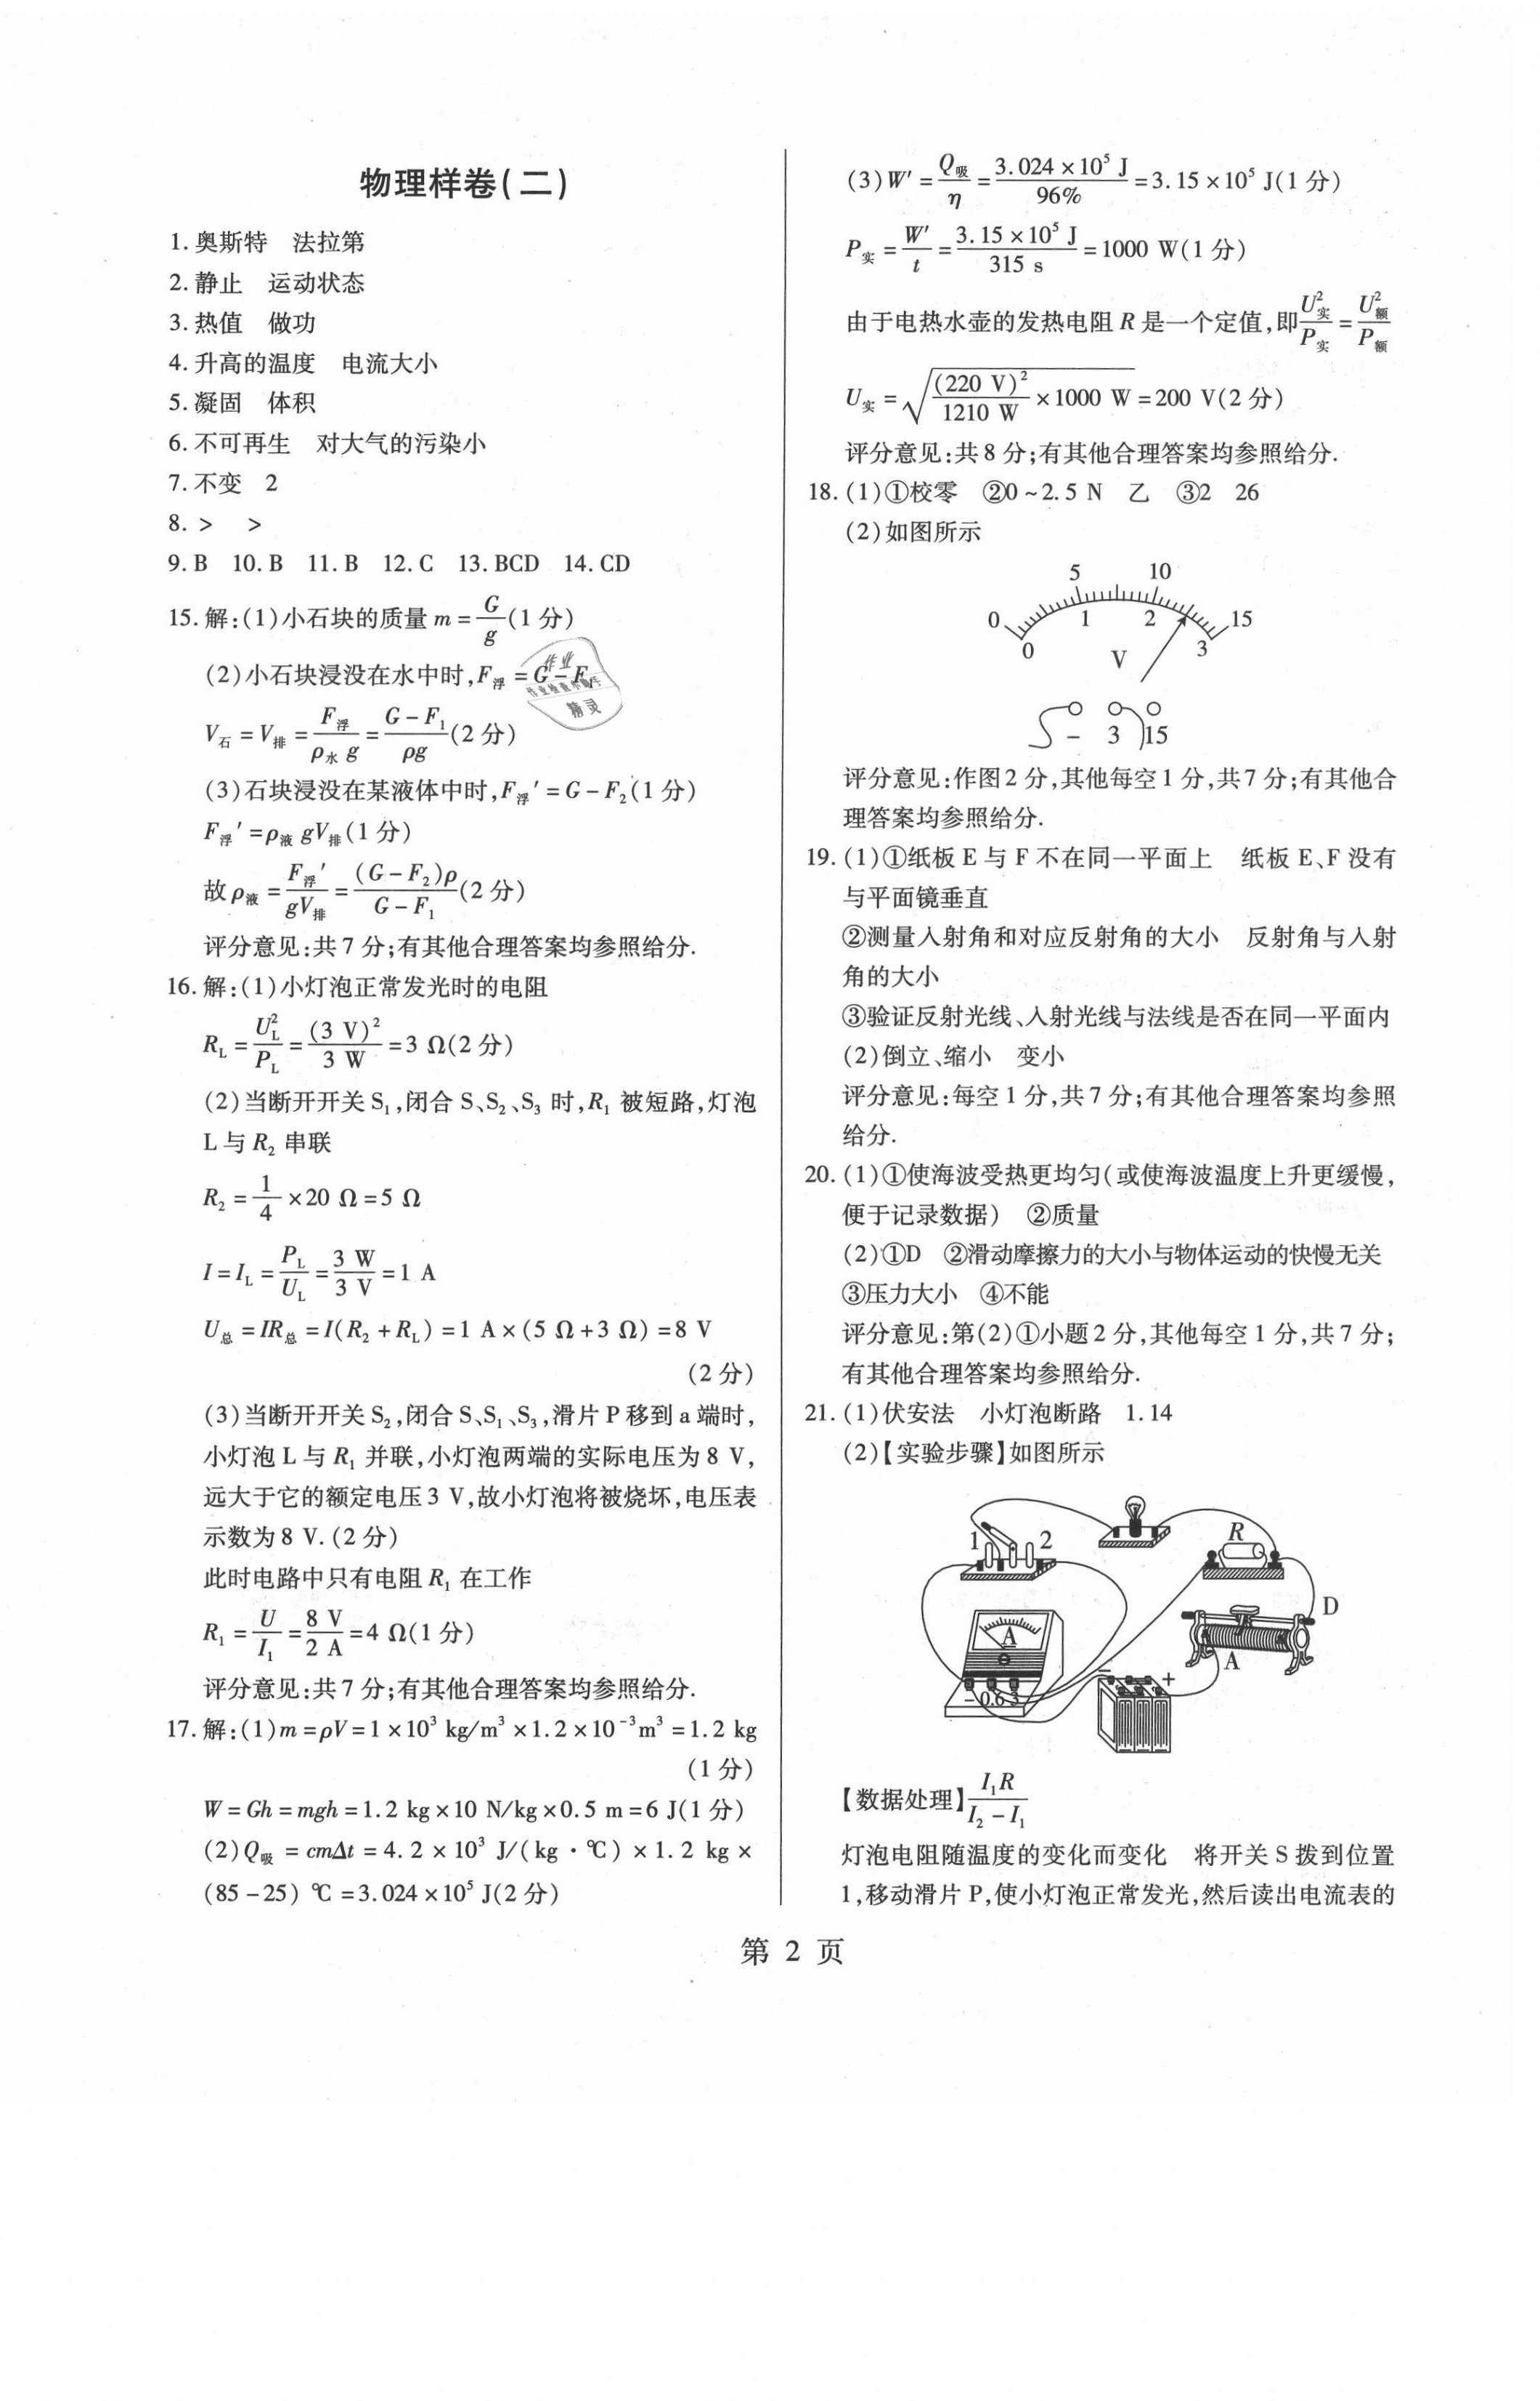 物理样卷(二)
1.奥斯特 法拉第
2.静止 运动状态
3.热值 做功
4.升高的温度 电流大小
5.凝固 体积
6.不可再生 对大气的污染小
7.不变 2
8.> >
9.B 10.B 11.B 12.C 13.BCD 14.CD
15.解:(1)小石块的质量 m = G/g (1 分)
(2)小石块浸没在水中时,F浮 = G - F₁
V石 = V排 = F浮/(ρ水 g) = (G - F₁)/(ρg) (2 分)
(3)石块浸没在某液体中时,F浮′ = G - F₂(1 分)
F浮′ = ρ液 gV排(1 分)
故 ρ液 = F浮′/(gV排) = (G - F₂)ρ/(G - F₁) (2 分)
评分意见:共 7 分;有其他合理答案均参照给分.
16.解:(1)小灯泡正常发光时的电阻
R_L = U_L²/P_L = (3 V)²/3 W = 3 Ω(2 分)
(2)当断开开关 S₁,闭合 S、S₂、S₃ 时,R₁ 被短路,灯泡
L 与 R₂ 串联
R₂ = 1/4 ×20 Ω = 5 Ω
I = I_L = P_L/U_L = 3 W/3 V = 1 A
U总 = IR总 = I(R₂ + R_L) = 1 A×(5 Ω + 3 Ω) = 8 V
(2 分)
(3)当断开开关 S₂,闭合 S、S₁、S₃,滑片 P 移到 a 端时,
小灯泡 L 与 R₁ 并联,小灯泡两端的实际电压为 8 V,
远大于它的额定电压 3 V,故小灯泡将被烧坏,电压表
示数为 8 V.(2 分)
此时电路中只有电阻 R₁ 在工作
R₁ = U/I₁ = 8 V/2 A = 4 Ω(1 分)
评分意见:共 7 分;有其他合理答案均参照给分.
17.解:(1)m = ρV = 1×10³ kg/m³ ×1.2×10⁻³m³ = 1.2 kg
(1 分)
W = Gh = mgh = 1.2 kg×10 N/kg×0.5 m = 6 J(1 分)
(2)Q吸 = cmΔt = 4.2 × 10³ J/(kg·℃) × 1.2 kg ×
(85 - 25) ℃ = 3.024×10⁵ J(2 分)
(3)W′ = Q吸/η = 3.024×10⁵ J/96% = 3.15×10⁵ J(1 分)
P实 = W′/t = 3.15×10⁵ J/315 s = 1000 W(1 分)
由于电热水壶的发热电阻 R 是一个定值,即 U实²/P实 = U额²/P额
U实 = √((220 V)²/1210 W ×1000 W) = 200 V(2 分)
评分意见:共 8 分;有其他合理答案均参照给分.
18.(1)①校零 ②0~2.5 N 乙 ③2 26
(2)如图所示
5 10
0 1 2 15
0 V 3
- 3 15
评分意见:作图 2 分,其他每空 1 分,共 7 分;有其他合
理答案均参照给分.
19.(1)①纸板 E 与 F 不在同一平面上 纸板 E、F 没有
与平面镜垂直
②测量入射角和对应反射角的大小 反射角与入射
角的大小
③验证反射光线、入射光线与法线是否在同一平面内
(2)倒立、缩小 变小
评分意见:每空 1 分,共 7 分;有其他合理答案均参照
给分.
20.(1)①使海波受热更均匀(或使海波温度上升更缓慢,
便于记录数据) ②质量
(2)①D ②滑动摩擦力的大小与物体运动的快慢无关
③压力大小 ④不能
评分意见:第(2)①小题 2 分,其他每空 1 分,共 7 分;
有其他合理答案均参照给分.
21.(1)伏安法 小灯泡断路 1.14
(2)【实验步骤】如图所示
1 2 R
D
A
A
- +
- 0.6 3
【数据处理】I₁R/(I₂ - I₁)
灯泡电阻随温度的变化而变化 将开关 S 拨到位置
1,移动滑片 P,使小灯泡正常发光,然后读出电流表的
第 2 页
作业
作业检查小助手
精灵